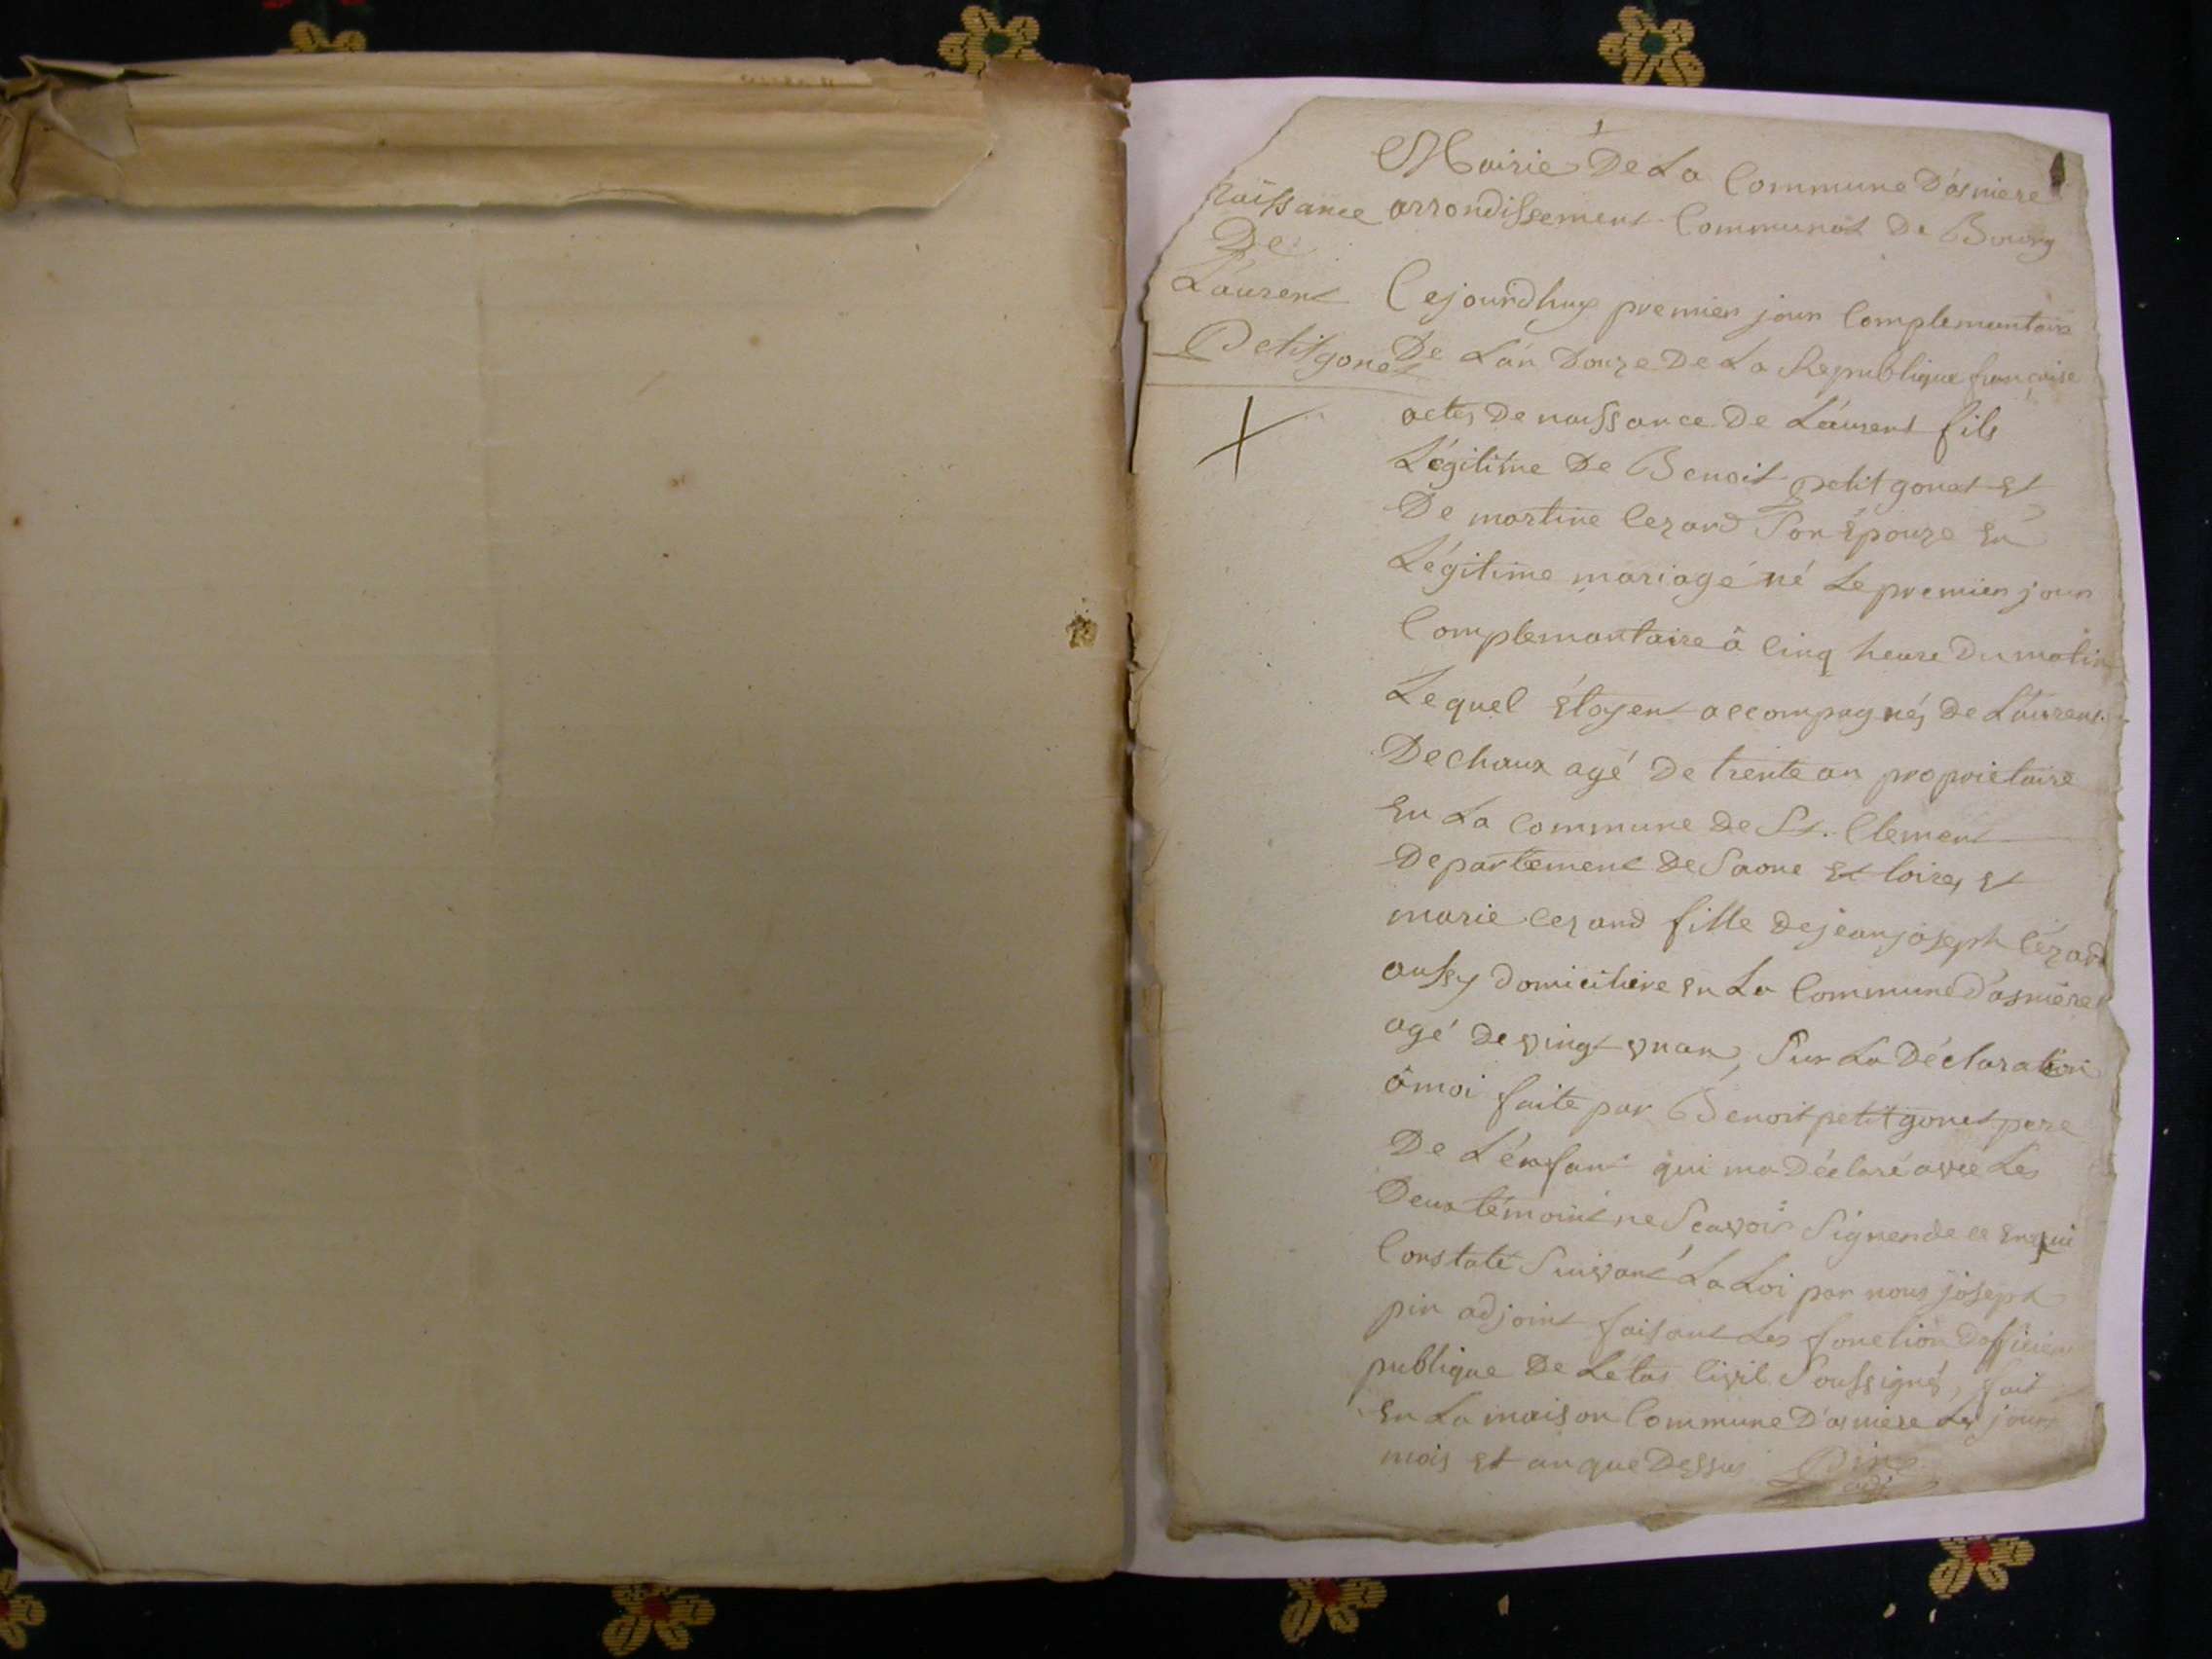 1
Mairie De La Commune D'asniere
arrondissement Communal De Bourg
naissance
De
Laurent
Petitgonet
Cejourdhuy premier jour Complemantaire
De L'an Douze De La Republique française
actes De naissance De Laurent fils
Légitime De Benoit petitgonet et
De martine Cezard Son Épouze En
Légitime mariagé né Le premier jour
Complemantaire à Cinq heure Du matin
Lequel Étoyent accompagnés De Laurent
Dechaux agé De trente an propriétaire
En La Commune De St. Clement
Departement De Saone Et loire, Et
marie Cezard fille De jean joseph Cézard
aussy Domiciliére En La Commune D'asniere
agé De vingt vnan, Sur La Déclaration
à moi faite par Benoit petitgonet pere
De L'énfant qui ma Déclaré avec Les
Deux témoint ne Scavoir Signer de ce Enqui
Constaté Suivant La Loi par nous joseph
pin adjoint faisant Les fonction D'officier
publique De L'état Civil Soussigné, fait
En La maison Commune D'asniere Les jour
mois Et an que Dessus Pin
adj